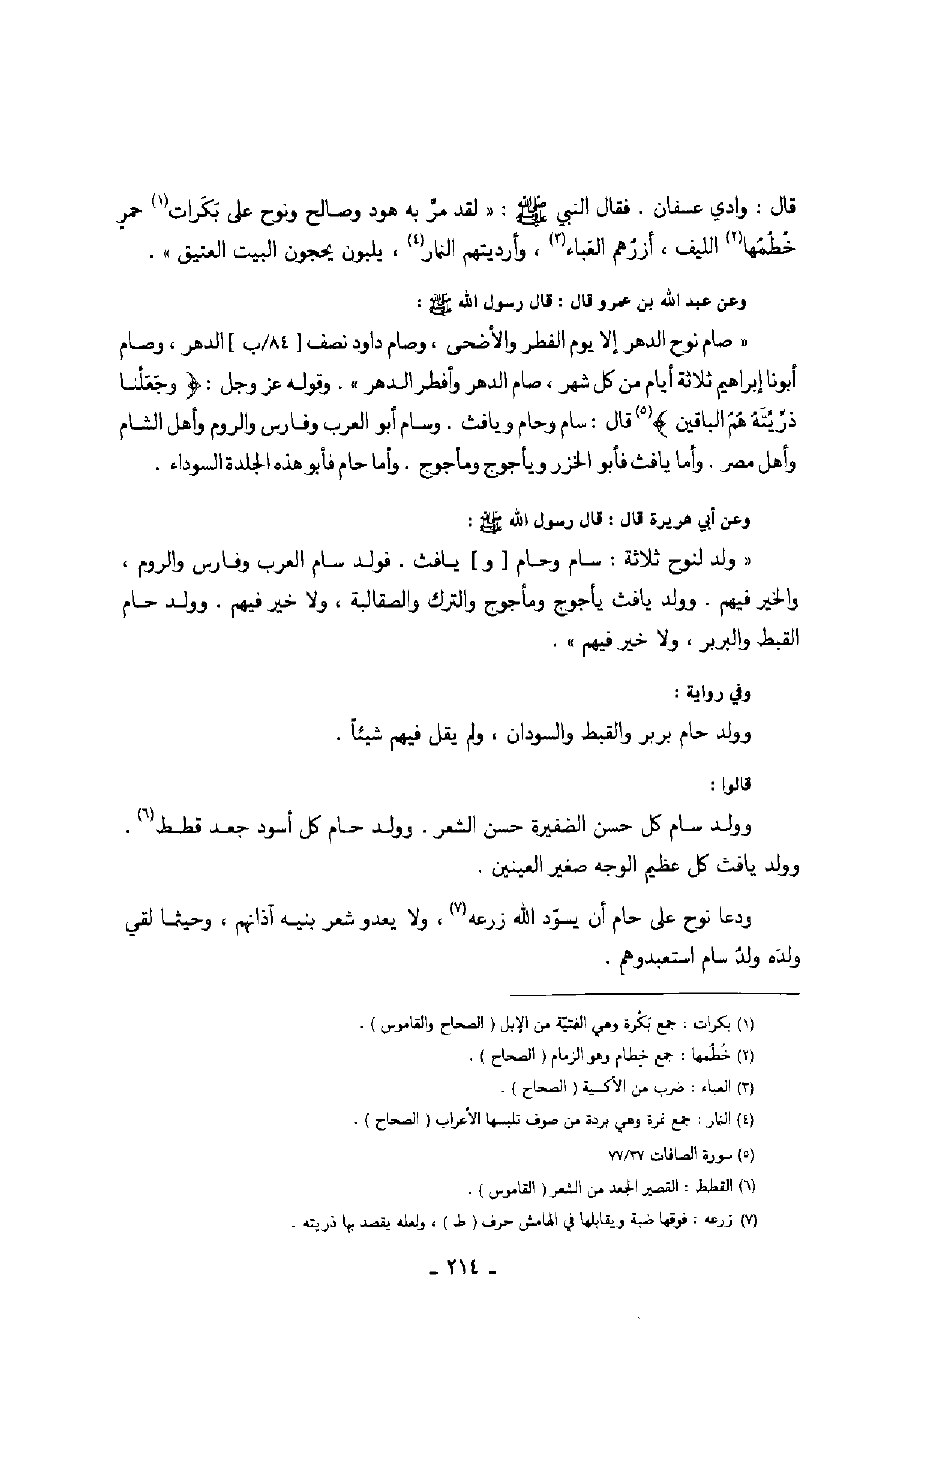 قال : وادي عسفان . فقال النبي ﷺ : « لقد مرَّ به هود وصالح ونوح على بَكَرات(١) حمرٍ
خُطُمُها(٢) الليف ، أزرُهم العَباء(٣) ، وأرديتهم النمار(٤) ، يلبون يحجون البيت العتيق » .
وعن عبد الله بن عمرو قال : قال رسول الله ﷺ :
« صام نوح الدهر إلا يوم الفطر والأضحى ، وصام داود نصف [ ٨٤/ب ] الدهر ، وصام
أبونا إبراهيم ثلاثة أيام من كل شهر ، صام الدهر وأفطر الدهر » . وقوله عز وجل : ﴿ وجَعَلْنا
ذرِّيَّتَهُ هُمُ الباقين ﴾(٥) قال : سام وحام ويافث . وسام أبو العرب وفارس والروم وأهل الشام
وأهل مصر . وأما يافث فأبو الخزر ويأجوج ومأجوج . وأما حام فأبو هذه الجلدة السوداء .
وعن أبي هريرة قال : قال رسول الله ﷺ :
« ولد لنوح ثلاثة : سام وحام [ و ] يافث . فولد سام العرب وفارس والروم ،
والخير فيهم . وولد يافث يأجوج ومأجوج والترك والصقالبة ، ولا خير فيهم . وولد حام
القبط والبربر ، ولا خير فيهم » .
وفي رواية :
وولد حام بربر والقبط والسودان ، ولم يقل فيهم شيئاً .
قالوا :
وولد سام كل حسن الضفيرة حسن الشعر . وولد حام كل أسود جعد قطط(٦) .
وولد يافث كل عظيم الوجه صغير العينين .
ودعا نوح على حام أن يسوّد الله زرعه(٧) ، ولا يعدو شعر بنيه آذانهم ، وحيثما لقي
ولدَه ولدُ سام استعبدوهم .
(١) بكرات : جمع بَكْرة وهي الفتيّة من الإبل ( الصحاح والقاموس ) .
(٢) خُطُمها : جمع خِطام وهو الزمام ( الصحاح ) .
(٣) العباء : ضرب من الأكسية ( الصحاح ) .
(٤) النمار : جمع نمرة وهي بردة من صوف تلبسها الأعراب ( الصحاح ) .
(٥) سورة الصافات ٧٧/٣٧
(٦) القطط : القصير الجعد من الشعر ( القاموس ) .
(٧) زرعه : فوقها ضبة ويقابلها في الهامش حرف ( ط ) ، ولعله يقصد بها ذريته .
- ٢١٤ -